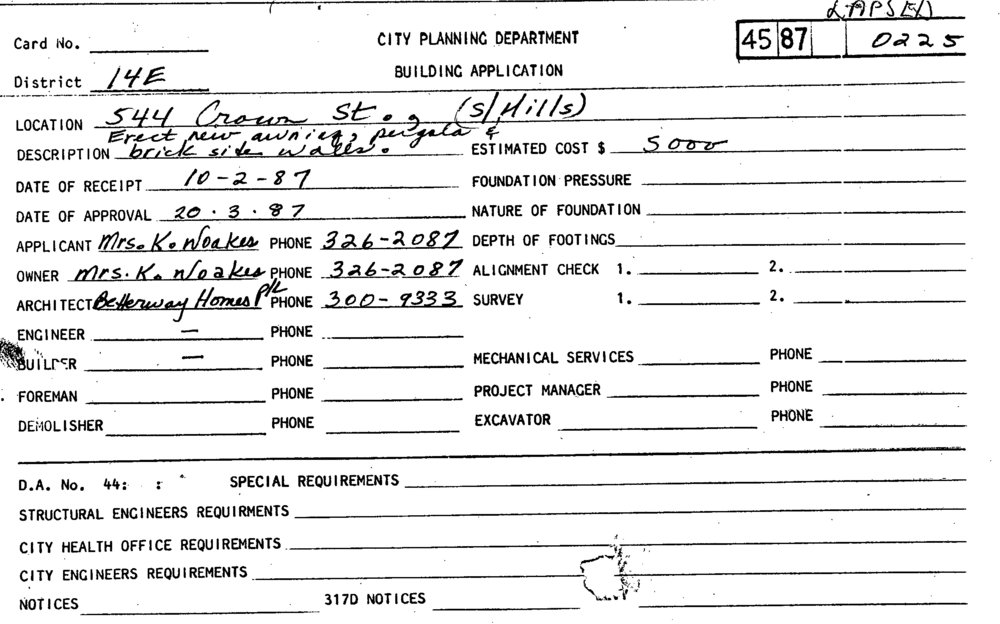 LAPSED
Card No. CITY PLANNING DEPARTMENT 45 87 0225
District 14E BUILDING APPLICATION
LOCATION 544 Crown St., (S/Hills)
DESCRIPTION Erect new awning, pergola &
brick side walls. ESTIMATED COST $ 5000
DATE OF RECEIPT 10-2-87 FOUNDATION PRESSURE
DATE OF APPROVAL 20.3.87 NATURE OF FOUNDATION
APPLICANT Mrs. K. Noakes PHONE 326-2087 DEPTH OF FOOTINGS
OWNER Mrs. K. Noakes PHONE 326-2087 ALIGNMENT CHECK 1. 2.
ARCHITECT Betterway Homes P/L PHONE 300-9333 SURVEY 1. 2.
ENGINEER — PHONE
BUILDER — PHONE MECHANICAL SERVICES PHONE
FOREMAN PHONE PROJECT MANAGER PHONE
DEMOLISHER PHONE EXCAVATOR PHONE
D.A. No. 44: : SPECIAL REQUIREMENTS
STRUCTURAL ENGINEERS REQUIRMENTS
CITY HEALTH OFFICE REQUIREMENTS
CITY ENGINEERS REQUIREMENTS
NOTICES 317D NOTICES